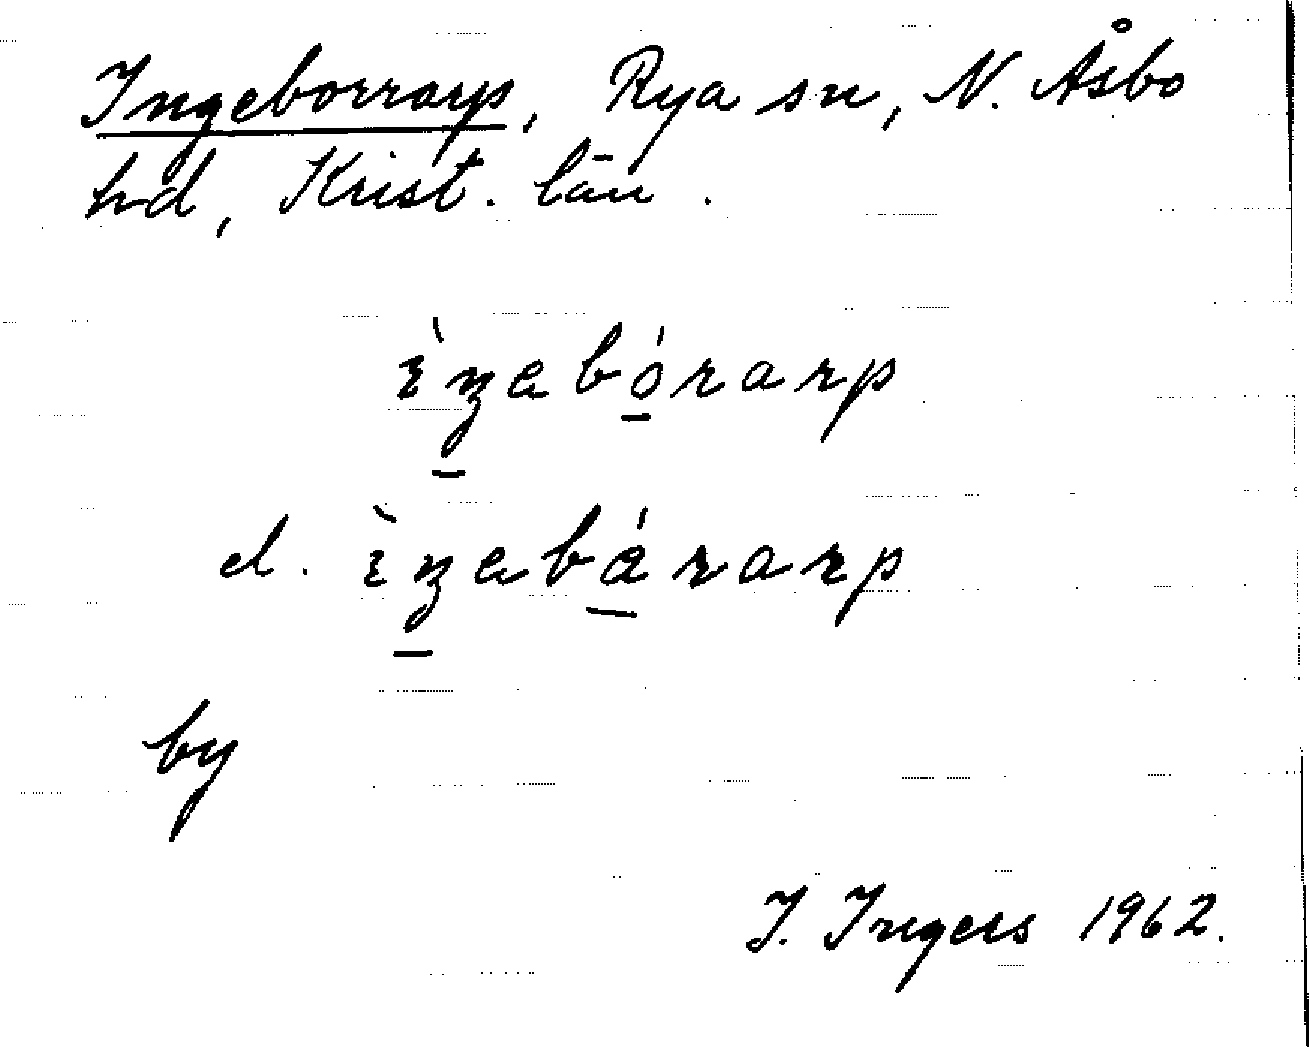 Ingeborrarp, Rya sn, N. Åsbo
hd, Krist. län.
ìŋebórarp
el. ìŋebárarp
by
I. Ingers 1962.